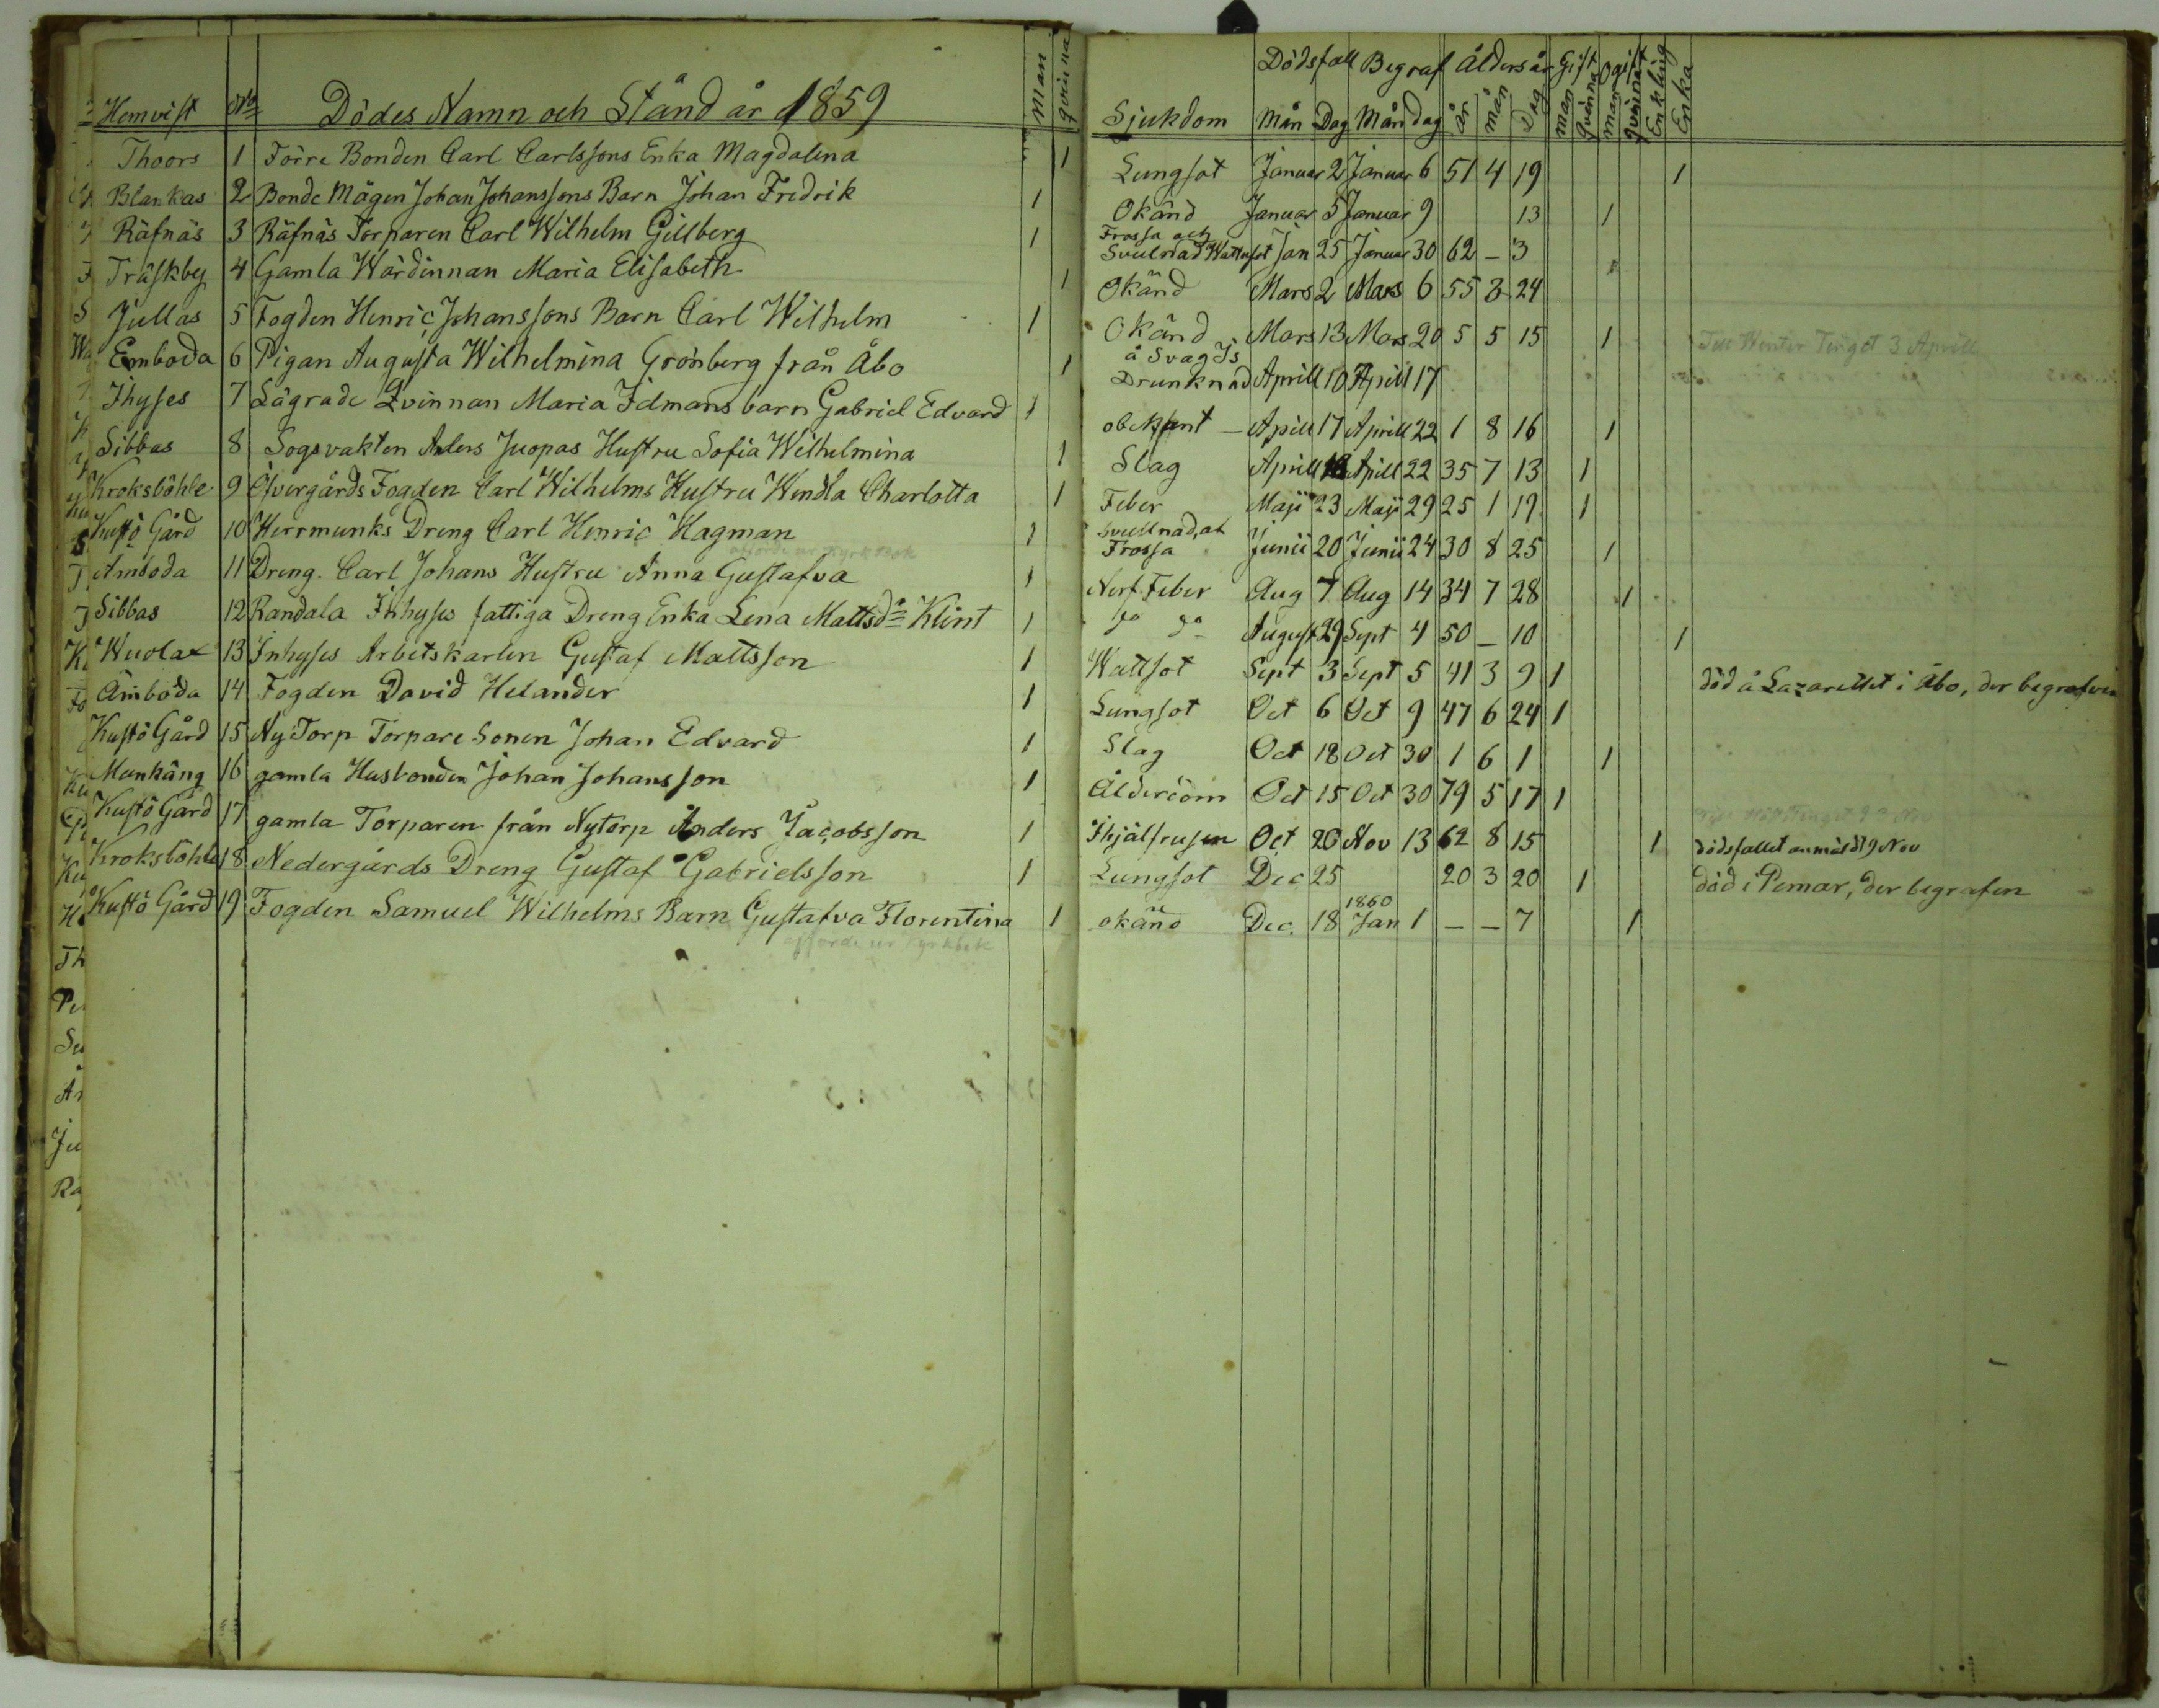 Dödsfall Begraf Åldersår Gift Ogift
Hemvist No Dödes Namn och Stånd år 1859 Man qvinna Sjukdom Mån Dag Mån dag år mån Dag man qvinna man qvinna Enkling Enka
Thoors 1 Förre Bonden Carl Carlssons Enka Magdalena 1 Lungsot Januar 2 Januar 6 51 4 19 1
Blankas 2 Bonde Mågen Johan Johanssons Barn Johan Fredrik 1 Okänd Januar 5 Januar 9 13 1
Räfnäs 3 Räfnäs Torparen Carl Wilhelm Gillberg 1 Frossa och
Svullnad Wattusot Jan 25 Januar 30 62 - 3
Träskby 4 Gamla Wärdinnan Maria Elisabeth 1 Okänd Mars 2 Mars 6 55 3 24
Jullas 5 Fogden Henric Johanssons Barn Carl Wilhelm 1 Okänd Mars 13 Mars 20 5 5 15 1
Till Winter Tinget 3 Aprill
Emboda 6 Pigan Augusta Wilhelmina Grönberg från Åbo 1 å svag Is
Drunknad Aprill 10 Aprill 17
Ihyses 7 Lägrade Qvinnan Maria Idmans barn Gabriel Edvard 1 obekant - Aprill 17 Aprill 22 1 8 16 1
Sibbas 8 Sogsvakten Anders Juopas Hustru Sofia Wilhelmina 1 Slag Aprill 18 Aprill 22 35 7 13 1
Kroksböhle 9 Öfvergårds Fogden Carl Wilhelms Hustru Wendla Charlotta 1 Feber Maji 23 Maji 29 25 1 19 1
Kustö Gård 10 Herrmunks Dreng Carl Henric Hagman 1 Svullnad, at
Frossa Junii 20 Junii 24 30 8 25 1
Åmboda 11 Dreng. Carl Johans Hustru Anna Gustafva 1 Nerf Feber Aug 7 Aug 14 34 7 28 1
Sibbas 12 Randala Inhyses fattiga Dreng Enka Lena Mattsdr Klint 1 do do August 29 Sept 4 50 - 10 1
Wuolax 13 Inhyses Arbetskarlen Gustaf Mattsson 1 Wattsot Sept 3 Sept 5 41 3 9 1 död å Lazarettet i Åbo, der begrafven
Åmboda 14 Fogden David Helander 1 Lungsot Oct 6 Oct 9 47 6 24 1
Kustö Gård 15 Ny Torp Torpare Sonen Johan Edvard 1 Slag Oct 18 Oct 30 1 6 1 1
Munkäng 16 gamla Husbonden Johan Johansson 1 Ålderdom Oct 15 Oct 30 79 5 17 1
Kustö Gård 17 gamla Torparen från Nytorp Anders Jacobsson 1 Ihjälfrusen Oct 20 Nov 13 62 8 15 1 dödsfallet anmäldt 9 Nov
Kroksböhle 18 Nedergårds Dreng Gustaf Gabrielsson 1 Lungsot Dec 25 20 3 20 1 död i Pemar, der begrafen
Kustö Gård 19 Fogden Samuel Wilhelms Barn Gustafva Florentina 1 okänd Dec. 18 1860 Jan 1 - - 7 1